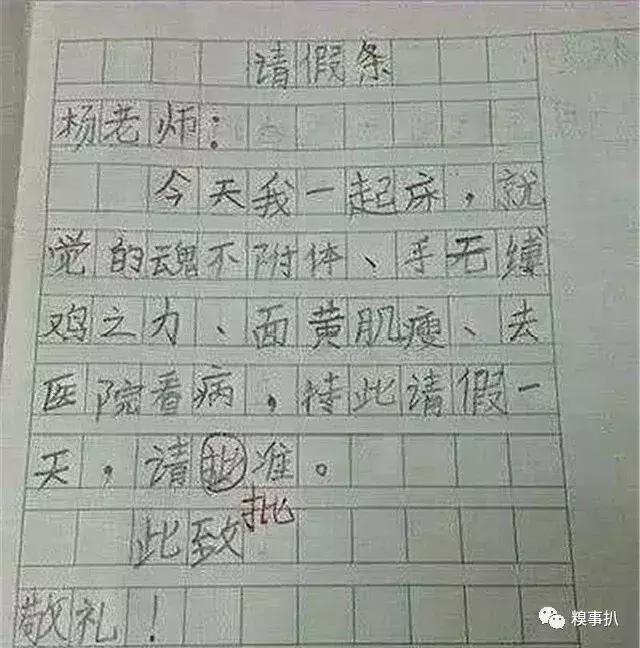 请假条
杨老师:
今天我一起床,就
觉的魂不附体、手无缚
鸡之力、面黄肌瘦、去
医院看病,持此请假一
天,请批准。
批
此致
敬礼!
糗事扒